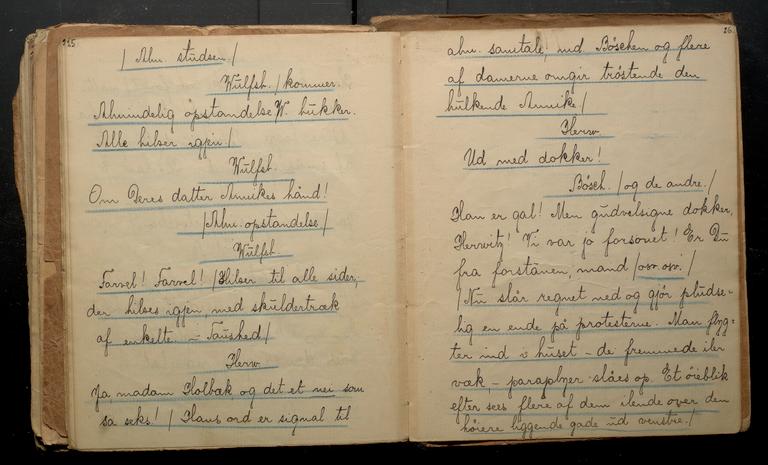 25.
/ Alm. studsen /
Wulfst. / kommer.
Almindelig opstandelse W. bukker.
Alle hilser igjen /
Wulfst.
Om Deres datter Annikes hånd!
/ Alm. opstandelse /
Wulfst.
Farvel! Farvel! / Hilser til alle sider,
der hilses igjen med skuldertræk
af enkelte. – Taushed /
Herw.
Ja madam Holbæk og det et nei som
sa seks! / Hans ord er signal til
26.
alm. samtale, med Böschen og flere
af damerne omgir tröstende den
hulkende Annike /
Herw.
Ud med dokker!
Bösch. / og de andre. /
Han er gal! Men gudvelsigne dokker,
Herrwitz! Vi var jo forsonet! Er Du
fra forstanen, mand / osv. osv. /
/ Nu slår regnet ned og gjör pludse-
lig en ende på protesterne. Man flyg-
ter ind i huset – de fremmede iler
væk, – paraplyer slåes op. Et öieblik
efter sees flere af dem ilende over den
höiere liggende gade ud venstre. /